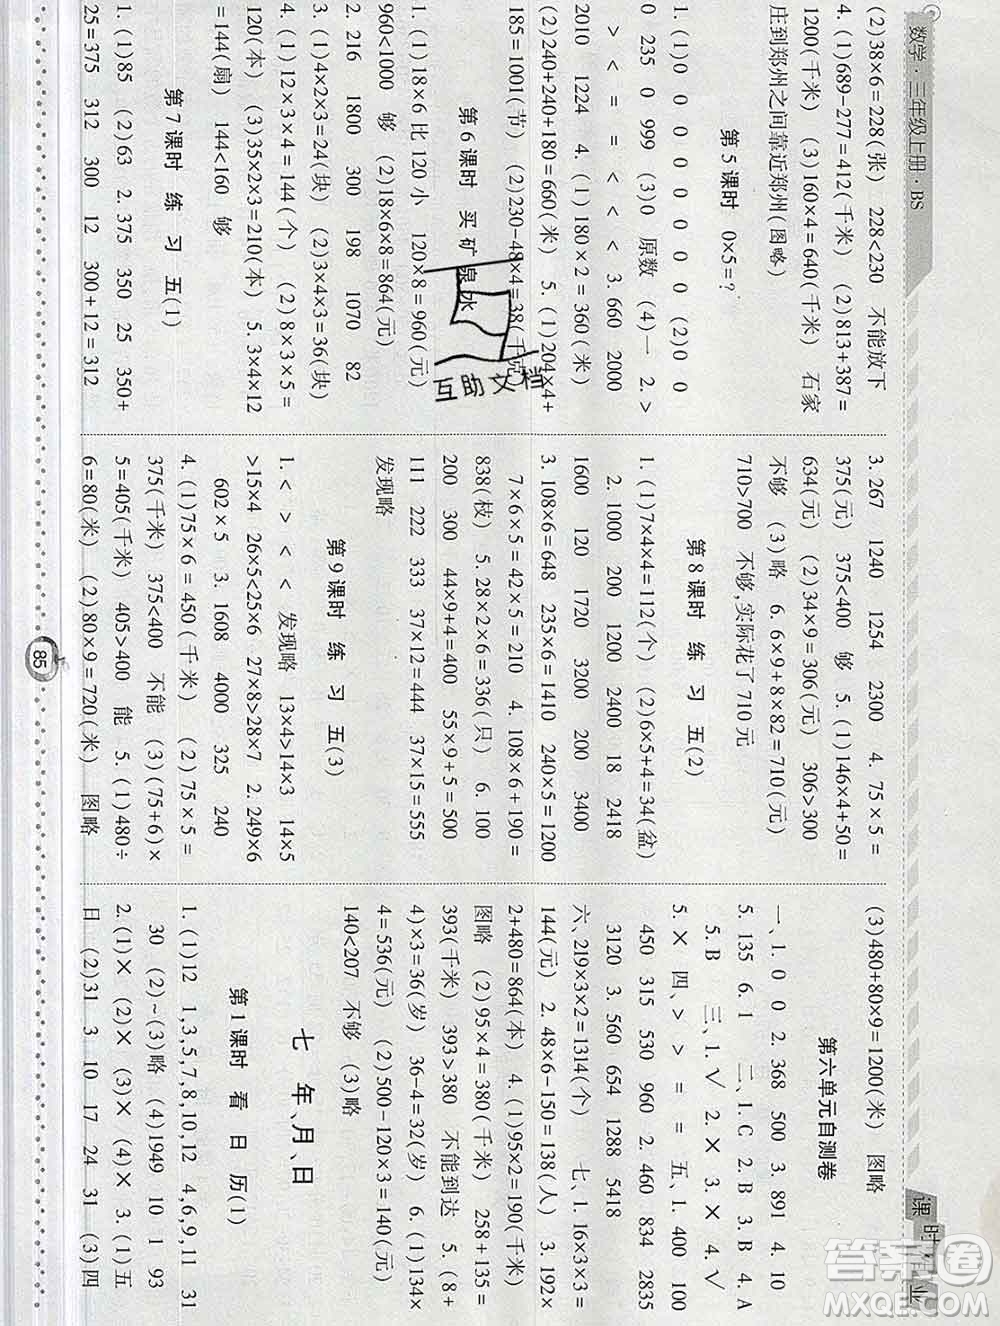 数学·三年级上册·BS
课时作业
(2)38×6=228(张) 228<230 不能放下
4. (1)689-277=412(千米) (2)813+387=
1200(千米) (3)160×4=640(千米) 石家
庄到郑州之间靠近郑州(图略)
第5课时 0×5=?
1. (1)0 0 0 0 0 0 0 0 (2)0 0
0 235 0 999 (3)0 原数 (4)一 2. >
> < = = < < < 3. 660 2000
2010 1224 4. (1)180×2=360(米)
(2)240+240+180=660(米) 5. (1)204×4+
185=1001(节) (2)230-48×4=38(千克)
第6课时 买矿泉水
1. (1)18×6比120小 120×8=960(元)
960<1000 够 (2)18×6×8=864(元)
2. 216 1800 300 198 1070 82
3. (1)4×2×3=24(块) (2)3×4×3=36(块)
4. (1)12×3×4=144(个) (2)8×3×5=
120(本) (3)35×2×3=210(本) 5. 3×4×12
=144(扇) 144<160 够
第7课时 练习五(1)
1. (1)85 (2)63 2. 375 350 25 350+
25=375 312 300 12 300+12=312
3. 267 1240 1254 2300 4. 75×5=
375(元) 375<400 够 5. (1)146×4+50=
634(元) (2)34×9=306(元) 306>300
不够 (3)略 6. 6×9+8×82=710(元)
710>700 不够,实际花了710元
第8课时 练习五(2)
1. (1)7×4×4=112(个) (2)6×5+4=34(盆)
2. 1000 200 1200 2400 18 2418
1600 120 1720 3200 200 3400
3. 108×6=648 235×6=1410 240×5=1200
7×6×5=42×5=210 4. 108×6+190=
838(枝) 5. 28×2×6=336(只) 6. 100
200 300 44×9+4=400 55×9+5=500
111 222 333 37×12=444 37×15=555
发现略
第9课时 练习五(3)
1. < > < < 发现略 13×4>14×3 14×5
>15×4 26×5<25×6 27×8>28×7 2. 249×6
602×5 3. 1608 4000 325 240
4. (1)75×6=450(千米) (2)75×5=
375(千米) 375<400 不能 (3)(75+6)×
5=405(千米) 405>400 能 5. (1)480÷
6=80(米) (2)80×9=720(米) 图略
(3)480+80×9=1200(米) 图略
第六单元自测卷
一、1. 0 0 2. 368 500 3. 891 4. 10
5. 135 6. 1 二、1. C 2. B 3. B 4. A
5. B 三、1. √ 2. × 3. × 4. √
5. × 四、> > = = 五、1. 400 100
450 315 530 960 2. 460 834 2835
3120 3. 560 654 1288 5418
六、219×3×2=1314(个) 七、1. 16×3×3=
144(元) 2. 48×6-150=138(人) 3. 192×
2+480=864(本) 4. (1)95×2=190(千米)
图略 (2)95×4=380(千米) 258+135=
393(千米) 393>380 不能到达 5. (8+
4)×3=36(岁) 36-4=32(岁) 6. (1)134×
4=536(元) (2)500-120×3=140(元)
140<207 不够 (3)略
七 年、月、日
第1课时 看日历(1)
1. (1)12 1,3,5,7,8,10,12 4,6,9,11 31
30 (2)~(3)略 (4)1949 10 1 93
2. (1)× (2)× (3)× (4)× 3. (1)五
日 (2)31 3 10 17 24 31 (3)四
85
互助文档
答案圈
MXQE.COM